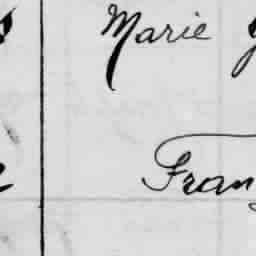 Marie
Fran